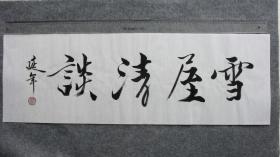 雪屋清談
延年